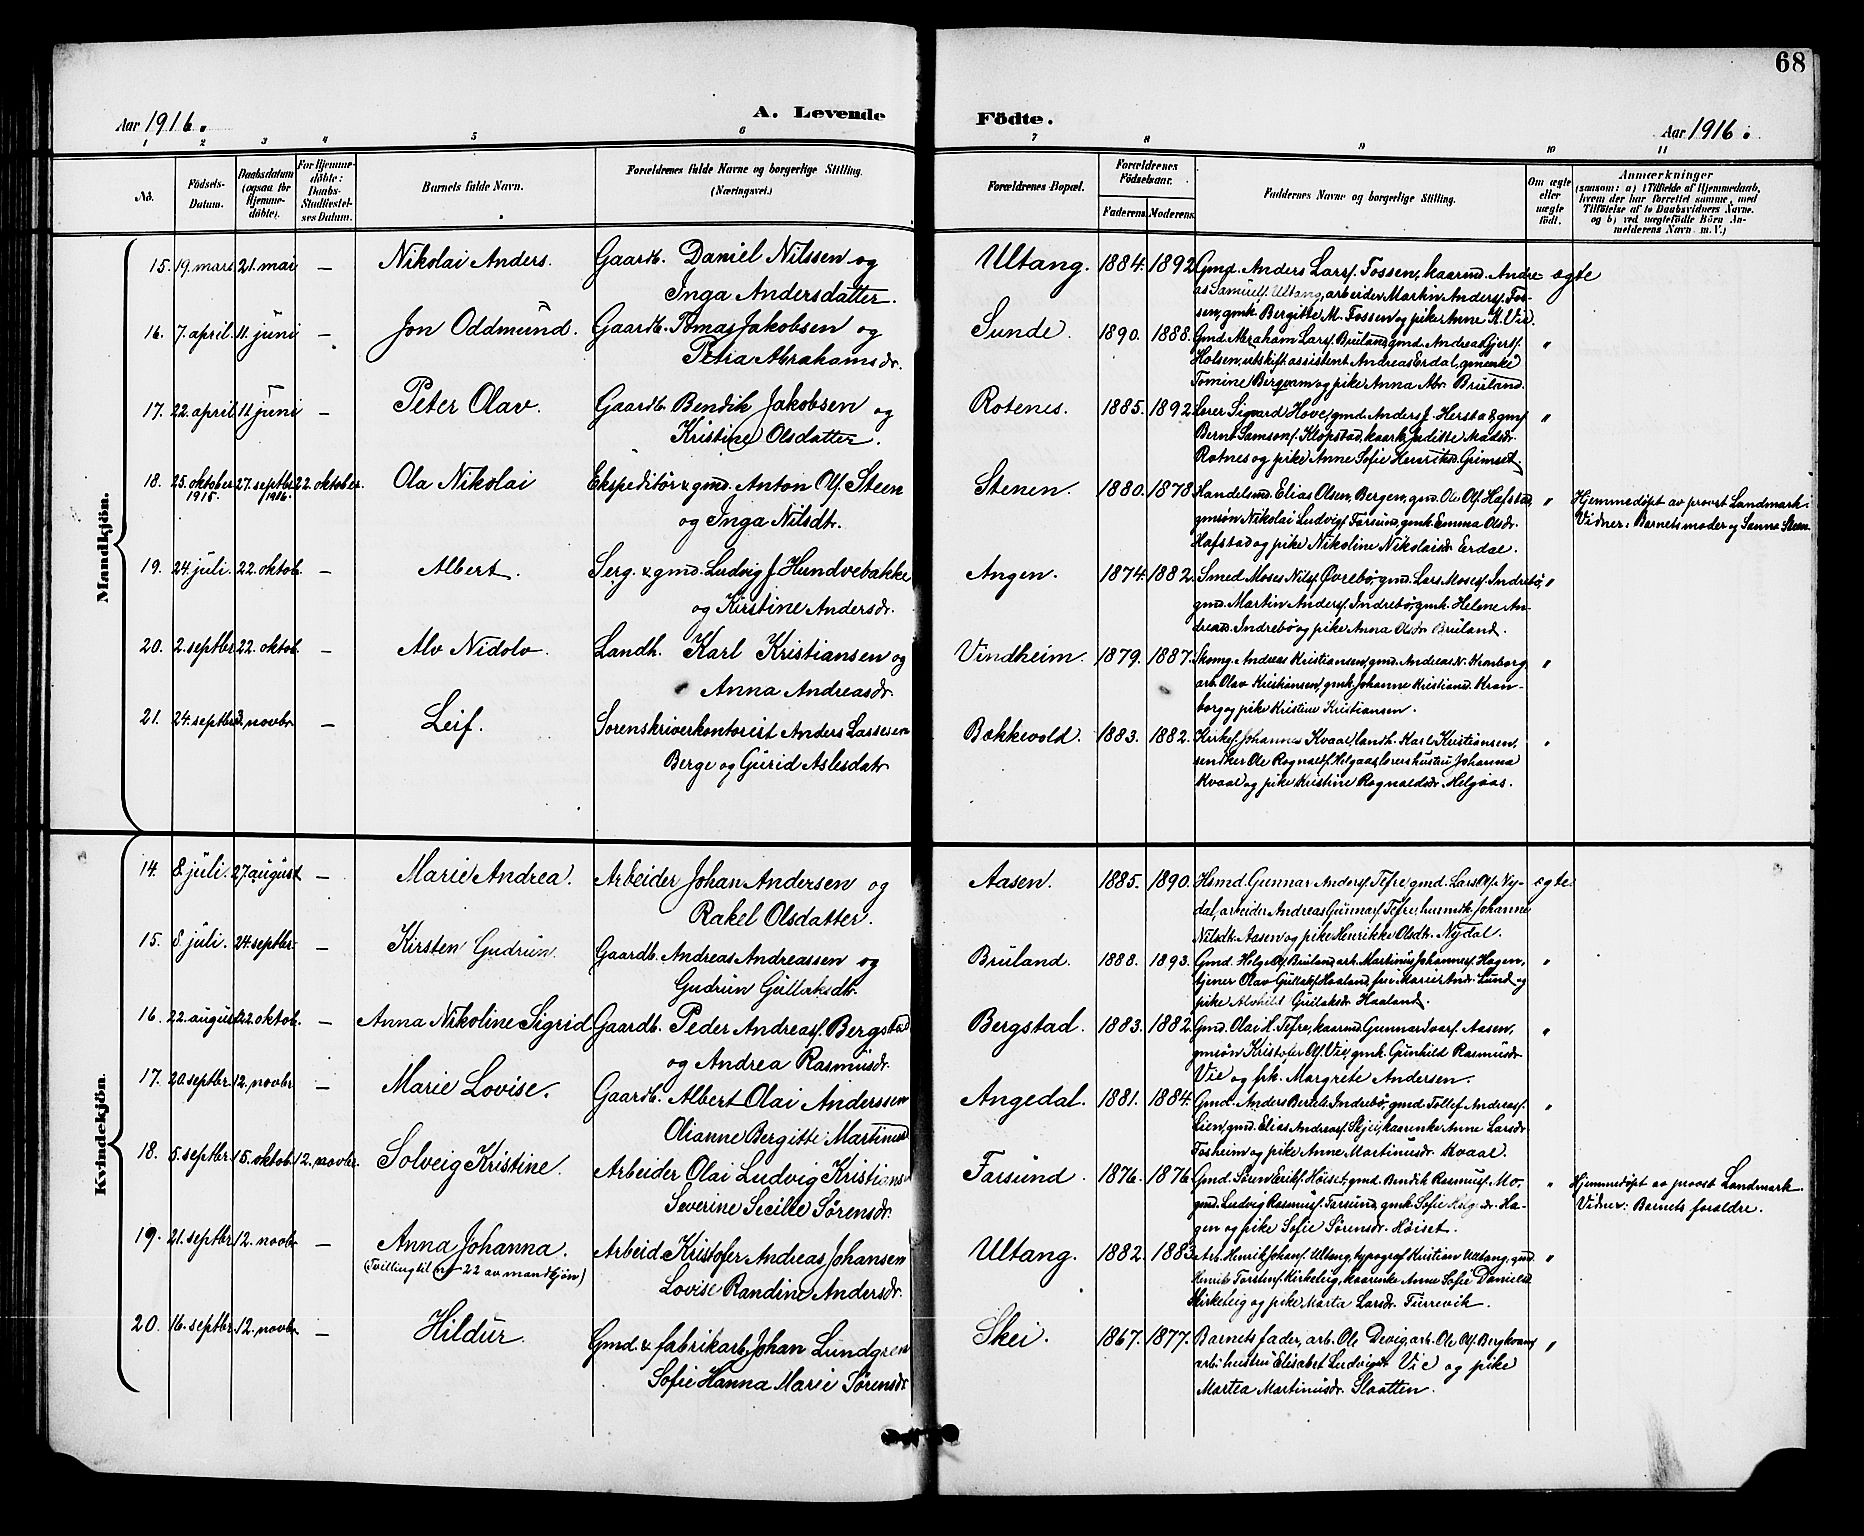 68
Aar 1916.
A. Levende
Födte.
Aar 1916.
1 2 3 4 5 6 7 8 9 10 11
No.
Födsels-Datum.
Daabsdatum (ogsaa for Hjemmedöbte).
For Hjemmedöbte: Daabs-Stadfæstelses Datum.
Barnets fulde Navn.
Forældrenes fulde Navne og borgerlige Stilling. (Næringsvei.)
Forældrenes Bopæl.
Forældrenes Födselsaar.
Faderens. Moderens.
Faddernes Navne og borgerlige Stilling.
Om ægte eller uægte födt.
Anmærkninger
(saasom: a) i Tilfælde af Hjemmedaab, hvem der har forrettet samme, med Tilföielse af to Daabsvidners Navne. og b) ved uægtefödte Börn Anmelderens Navn m. V.)
Mandkjön.
15. 19. mars 21. mai — Nikolai Anders. Gaardb. Daniel Nilssen og
Inga Andersdatter.
Ultang. 1884. 1892. Gmd. Anders Larsf. Fossen, kaarmd. Andre- ægte
as Samuelf. Ultang, arbeider Martin Andersf. Fos-
sen, gmk. Bergitte M. Fossen og pike Anne M. Vie.
16. 7. april. 11. juni — Jon Oddmund. Gaardb. Tomas Jakobsen og
Petra Abrahamsdr.
Sunde. 1890. 1888. Gmd. Abraham Larsf. Bruland, gmd. Andreas Gjertsf. "
Holsen, utskift. assistent Andreas Erdal, gmenke
Tomine Bergum og pike Anna Abr. Bruland.
17. 22. april 11. juni — Peter Olav. Gaardb. Bendik Jakobsen og
Kristine Olsdatter.
Rotenes. 1885. 1892. Lærer Sigvard Hove, gmd. Anders J. Herstad, gmf. "
Bernt Samsonf. Klopstad, kaark. Juditte Madsdr.
Rotnes og pike Anne Sofie Henriksd. Grimset
18. 25. oktober 1915. 27. septbr. 1916. 22. oktober. Ola Nikolai Ekspeditör & gmd. Anton Olf. Steen
og Inga Nilsdtr.
Stenen. 1880. 1878. Handelsmd. Elias Olsen, Bergen, gmd. Ole Olf. Hafstad, "
gmsön Nikolai Ludvigf. Farsund, gmk. Emma Olsdr.
Hafstad og pike Nikoline Nikolaisdr. Erdal.
Hjemmedöpt av provst Landmark.
Vidner: Barnets moder og Sanna Steen.
19. 24. juli. 22. oktob. — Albert. Serg. & gmd. Ludvig J. Hundvebakke
og Kirstine Andersdr.
Angen. 1874. 1882. Smed Moses Nilsf. Øvrebö, gmd. Lars Mosesf. Indrebö, "
gmd. Martin Andersf. Indrebö, gmk. Helene An-
dreasd. Indrebö og pike Anna Olsdr. Bruland.
20. 2. septbr. 22. oktob. — Alv Nidolv. Landh. Karl Kristiansen og
Anna Andreasdr.
Vindheim. 1879. 1887. Skomg. Andreas Kristiansen, gmd. Andreas N. Kronborg "
arb. Olav Kristiansen, gmk. Johanne Kristiansd. Kron-
borg og pike Kristine Kristiansen.
21. 24. septbr. 3. novbr — Leif. Sorenskriverkontorist Anders Lassesen
Berge og Gurid Aslesdatr
Bakkevold. 1883. 1882. Kirkes. Johannes Kvaal, landh. Karl Kristiansen, "
Ole Rognaldf. Helgaas, lærershustru Johanna
Kvaal og pike Kristine Rognaldsdr. Helgaas.
Kvindekjön.
14. 8. juli. 27. august — Marie Andrea. Arbeider Johan Andersen og
Rakel Olsdatter.
Aasen. 1885. 1890. Hsmd. Gunnar Andersf. Tefre, gmd. Lars Olf. Ny- ægte.
dal, arbeider Andreas Gunnarf. Tefre, husmdk. Johanne
Nilsdtr. Aasen og pike Henrikke Olsdtr. Nydal.
15. 8. juli. 24. septbr. — Kirsten Gudrun. Gaardb. Andreas Andreassen og
Gudrun Gullaksdtr.
Bruland. 1888. 1893. Gmd. Helge Olf. Bruland, ark. Martinus Johannesf. Hagen, "
tjener Olav Gullakf. Haaland, fru Marie Andr. Lund og
pike Alvhild Gullaksdr. Haaland.
16. 22. august 22. oktob. — Anna Nikoline Sigrid Gaardb. Peder Andreasf. Bergstad
og Andrea Rasmusdr.
Bergstad. 1883. 1882. Gmd. Olai H. Tefre, kaarmd. Gunnar Ivarf. Aasen, "
gmsön Kristofer Olf. Vie, gmk. Gunhild Rasmusdr.
Vie og frk. Margrete Andersen.
17. 20. septbr. 12. novbr — Marie Lovise. Gaardb. Albert Olai Anderssen
Olianne Bergitte Martinusd
Angedal. 1881. 1884. Gmd. Anders Bertels. Indrebö, gmd. Tollef Andreasf. "
Lien, gmd. Elias Andreasf. Skjei, kaarenke Anne Larsdr
Fosheim og pike Anne Martinusdr. Kvaal.
18. 5. septbr. 15. oktob. 12. novbr. Solveig Kristine. Arbeider Olai Ludvig Kristians.
Severine Secille Sørensdr.
Farsund. 1876. 1876. Gmd. Sören Erikf. Höiset, gmd. Bendik Rasmusf. Mo, "
gmd. Ludvig Rasmusf. Farsund, gmk. Sofie Helg. dr. Ha-
gen og pike Sofie Sørensdr. Höiset.
Hjemmedöpt av provst Landmark.
Vidner: Barnets foraldre.
19. 21. septbr. 12. novbr — Anna Johanna. Arbeid. Kristofer Andreas Johansen
(Tvilling til no 22 av mandkjön) Lovise Randine Andersdr.
Ultang. 1882. 1883. Arb. Henrik Johanf. Ultang, typograf Kristian Ultang, gmd. "
Henrik Torstenf. Kirkeleig, kaarenke Anne Sofie Danielsd.
Kirkeleig og pike Marta Larsdr. Furrevik.
20. 16. septbr. 12. novbr — Hildur. Gmd. & fabrikarb. Johan Lundgren
Sofie Hanna Marie Sørensdr
Skei. 1867. 1877. Barnets fader, arb. Ole Devig, arb. Ole Olf. Bergkvam, "
arb. hustru Elisabet Ludvigdr. Vie og pike
Martea Martinusdr. Slaatten.